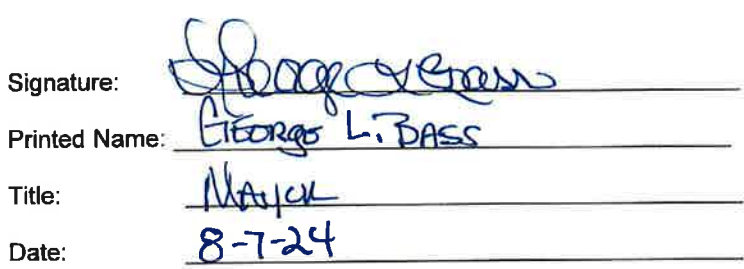 Signature: George L Bass
Printed Name: GEORGE L. BASS
Title: MAYOR
Date: 8-7-24